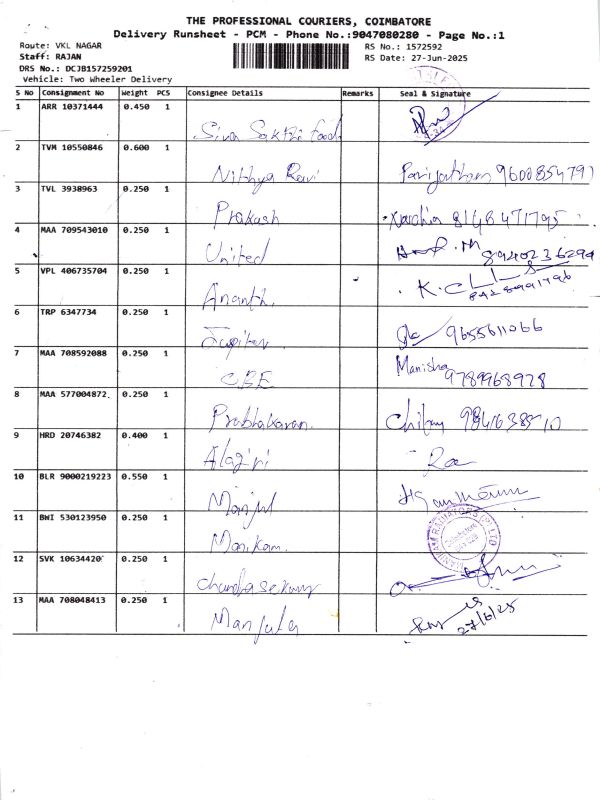 THE PROFESSIONAL COURIERS, COIMBATORE
Delivery Runsheet - PCM - Phone No.:9047080280 - Page No.:1
Route: VKL NAGAR RS No.: 1572592
Staff: RAJAN RS Date: 27-Jun-2025
DRS No.: DCJB157259201
Vehicle: Two Wheeler Delivery
S No Consignment No Weight PCS Consignee Details Remarks Seal & Signature
1 ARR 10371444 0.450 1 Siva Sakthi food
2 TVM 10550846 0.600 1 Nithya Ravi Parijatham 9600854791
3 TVL 3938963 0.250 1 Prakash 8148471795
4 MAA 709543010 0.250 1 United 8940236294
5 VPL 406735704 0.250 1 Ananth.
6 TRP 6347734 0.250 1 Jupiter 9655611066
7 MAA 708592088 0.250 1 CBE Manisha 9789968928
8 MAA 577004872 0.250 1 Prabhakaran.
9 HRD 20746382 0.400 1 Alagiri
10 BLR 9000219223 0.550 1 Manjul
11 BWI 530123950 0.250 1 Manikam. MANIKAM RADIATORS PVT LTD
12 SVK 10634420 0.250 1 Chandrasekaran
13 MAA 708048413 0.250 1 Manjula 27/6/25